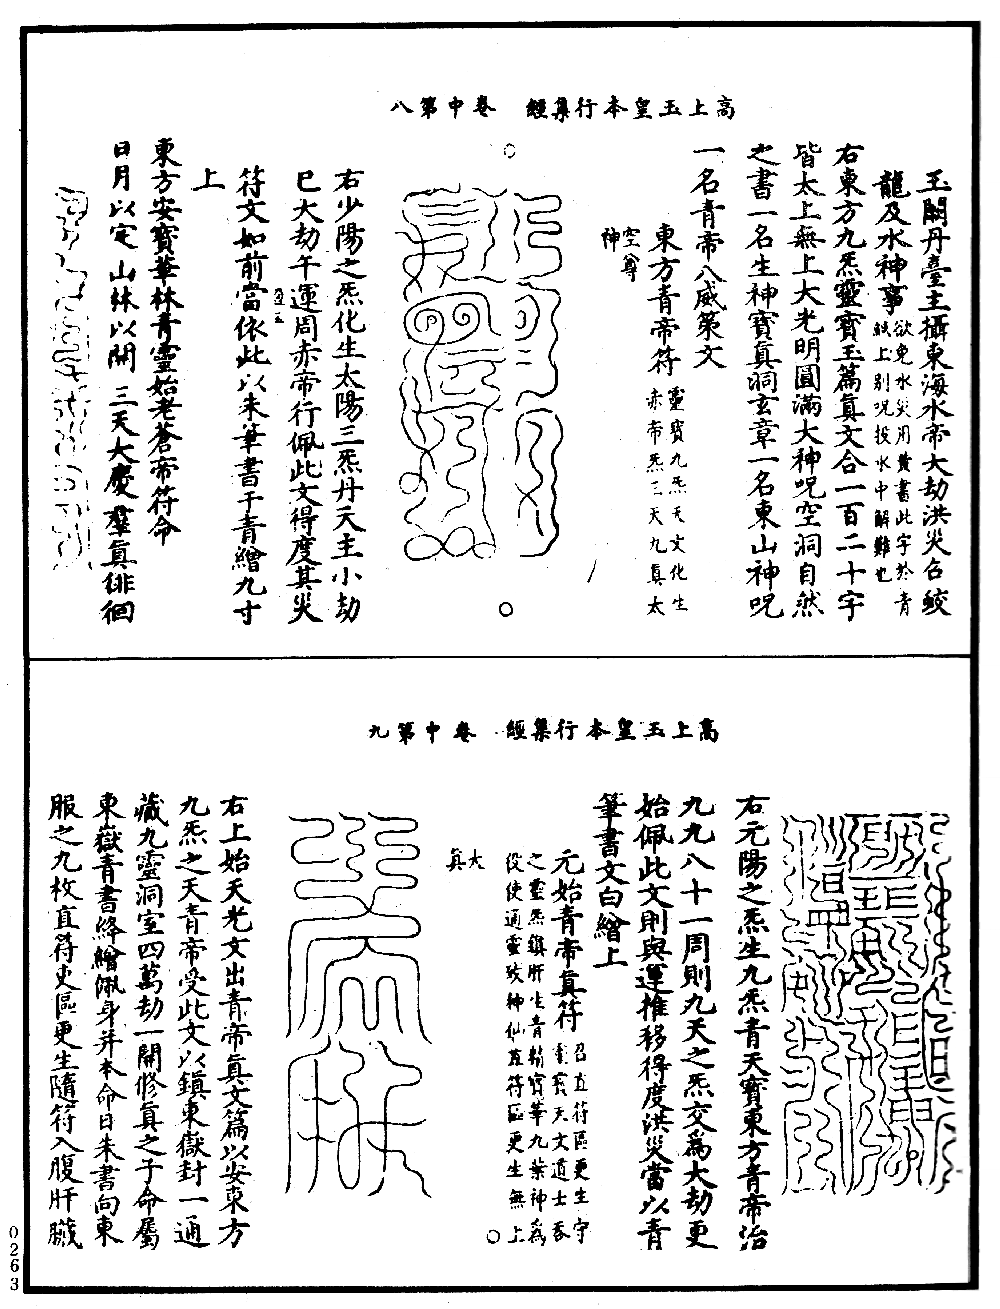 高上玉皇本行集經　卷中第八
玉闕丹臺主攝東海水帝大劫洪災召蛟
龍及水神事欲免水災用黃書此字於青
紙上別呪投水中解難也
右東方九炁靈寶玉篇真文合一百二十字
皆太上無上大光明圓滿大神呪空洞自然
之書一名生神寶真洞玄章一名東山神呪
一名青帝八威策文
東方青帝符靈寶九炁天文化生
赤帝炁三天九真太
空尊
神
右少陽之炁化生太陽三炁丹天主小劫
巳大劫午運周赤帝行佩此文得度其災
符文如前當依此以朱筆書于青繒九寸
上
東方安寶華林青靈始老蒼帝符命
日月以定　山林以開　三天大慶　羣真徘徊
高上玉皇本行集經　卷中第九
右元陽之炁生九炁青天寶東方青帝治
九九八十一周則九天之炁交為大劫更
始佩此文則與運推移得度洪災當以青
筆書文白繒上
元始青帝真符召直符區更生守
靈寶天文道士吞
之靈炁鎮肝生青精寶華九葉神為
役使通靈致神仙直符區更生無上
大
真
右上始天光文出青帝真文篇以安東方
九炁之天青帝受此文以鎮東嶽封一通
藏九靈洞室四萬劫一開修真之子命屬
東嶽青書絳繒佩身并本命日朱書向東
服之九枚直符吏區更生隨符入腹肝臟
0263